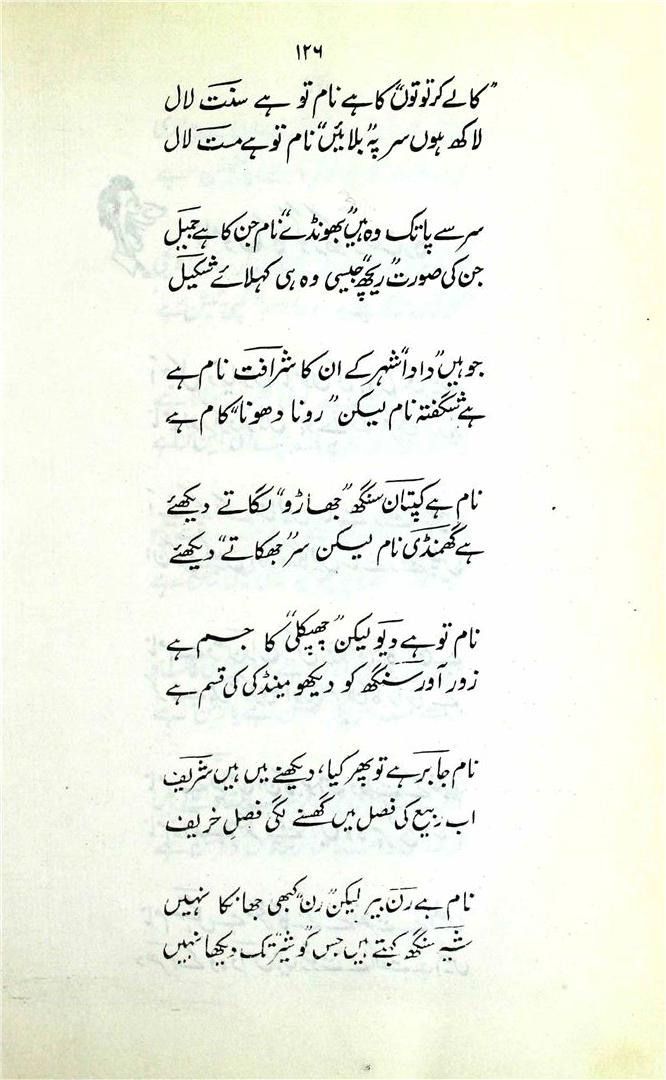 ۱۲۶
"کالے کرتوتوں" کا ہے نام تو ہے سنت لال
لاکھ ہوں سر پہ "بلائیں" نام تو ہے مست لال
سر سے پا تک وہ ہیں "بھونڈے" نام جن کا ہے جمیل
جن کی صورت "ریچھ" جیسی وہ ہی کہلائے شکیل
جو ہیں "دادا" شہر کے ان کا شرافت نام ہے
ہے شگفتہ نام لیکن "رونا دھونا" کام ہے
نام ہے کپتان سنگھ "جھاڑو" لگاتے دیکھئے
ہے گھمنڈی نام لیکن سر "جھکاتے" دیکھئے
نام تو ہے دیو لیکن "چھپکلی" کا جسم ہے
زور آور سنگھ کو دیکھو مینڈکی کی قسم ہے
نام جابر ہے تو پھر کیا، دیکھنے میں ہیں شریف
اب ربیع کی فصل میں گھسنے لگی فصلِ خریف
نام ہے رن بیر لیکن "رن" کبھی جھانکا نہیں
شیر سنگھ کہتے ہیں جس کو "شیر" تک دیکھا نہیں